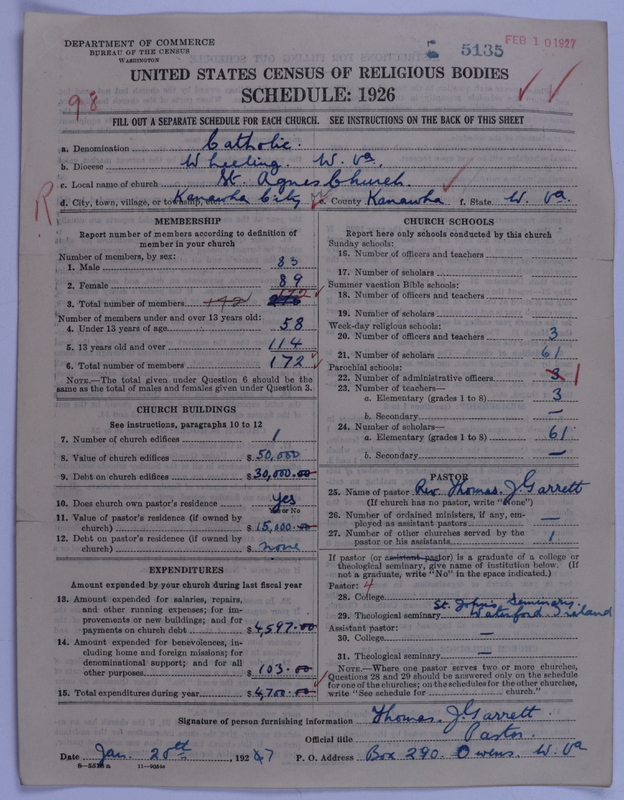 DEPARTMENT OF COMMERCE
BUREAU OF THE CENSUS
WASHINGTON
5135
FEB 10 1927
UNITED STATES CENSUS OF RELIGIOUS BODIES
98
SCHEDULE: 1926
FILL OUT A SEPARATE SCHEDULE FOR EACH CHURCH. SEE INSTRUCTIONS ON THE BACK OF THIS SHEET
a. Denomination Catholic.
b. Diocese Wheeling. W. Va.
c. Local name of church St. Agnes Church.
R
d. City, town, village, or township Kanawha City e. County Kanawha f. State W. Va.
MEMBERSHIP
Report number of members according to definition of member in your church
Number of members, by sex:
1. Male 83
2. Female 89
3. Total number of members 172
Number of members under and over 13 years old:
4. Under 13 years of age 58
5. 13 years old and over 114
6. Total number of members 172
NOTE.—The total given under Question 6 should be the
same as the total of males and females given under Question 3.
CHURCH BUILDINGS
See instructions, paragraphs 10 to 12
7. Number of church edifices 1
8. Value of church edifices $ 50,000
9. Debt on church edifices $ 30,000.00
10. Does church own pastor's residence yes
Yes or No
11. Value of pastor's residence (if owned by
church) $ 15,000.00
12. Debt on pastor's residence (if owned by
church) $ none
EXPENDITURES
Amount expended by your church during last fiscal year
13. Amount expended for salaries, repairs,
and other running expenses; for im-
provements or new buildings; and for
payments on church debt $ 4,597.00
14. Amount expended for benevolences, in-
cluding home and foreign missions; for
denominational support; and for all
other purposes $ 103.00
15. Total expenditures during year $ 4,700.00
CHURCH SCHOOLS
Report here only schools conducted by this church
Sunday schools:
16. Number of officers and teachers
17. Number of scholars
Summer vacation Bible schools:
18. Number of officers and teachers
19. Number of scholars
Week-day religious schools:
20. Number of officers and teachers 3
21. Number of scholars 61
Parochial schools:
22. Number of administrative officers 3 1
23. Number of teachers—
a. Elementary (grades 1 to 8) 3
b. Secondary —
24. Number of scholars—
a. Elementary (grades 1 to 8) 61
b. Secondary —
PASTOR
25. Name of pastor Rev. Thomas. J. Garrett
(If church has no pastor, write "None")
26. Number of ordained ministers, if any, em-
ployed as assistant pastors —
27. Number of other churches served by the
pastor or his assistants 1
If pastor (or assistant pastor) is a graduate of a college or
theological seminary, give name of institution below. (If
not a graduate, write "No" in the space indicated.)
Pastor: 4
28. College
St. John's Seminary
29. Theological seminary Waterford Ireland
Assistant pastor:
30. College —
31. Theological seminary —
NOTE.—Where one pastor serves two or more churches,
Questions 28 and 29 should be answered only on the schedule
for one of the churches; on the schedules for the other churches,
write "See schedule for church."
Signature of person furnishing information Thomas. J. Garrett
Official title Pastor.
Date Jan. 20th, 1927 P. O. Address Box 290. Owens. W. Va
11—9054a